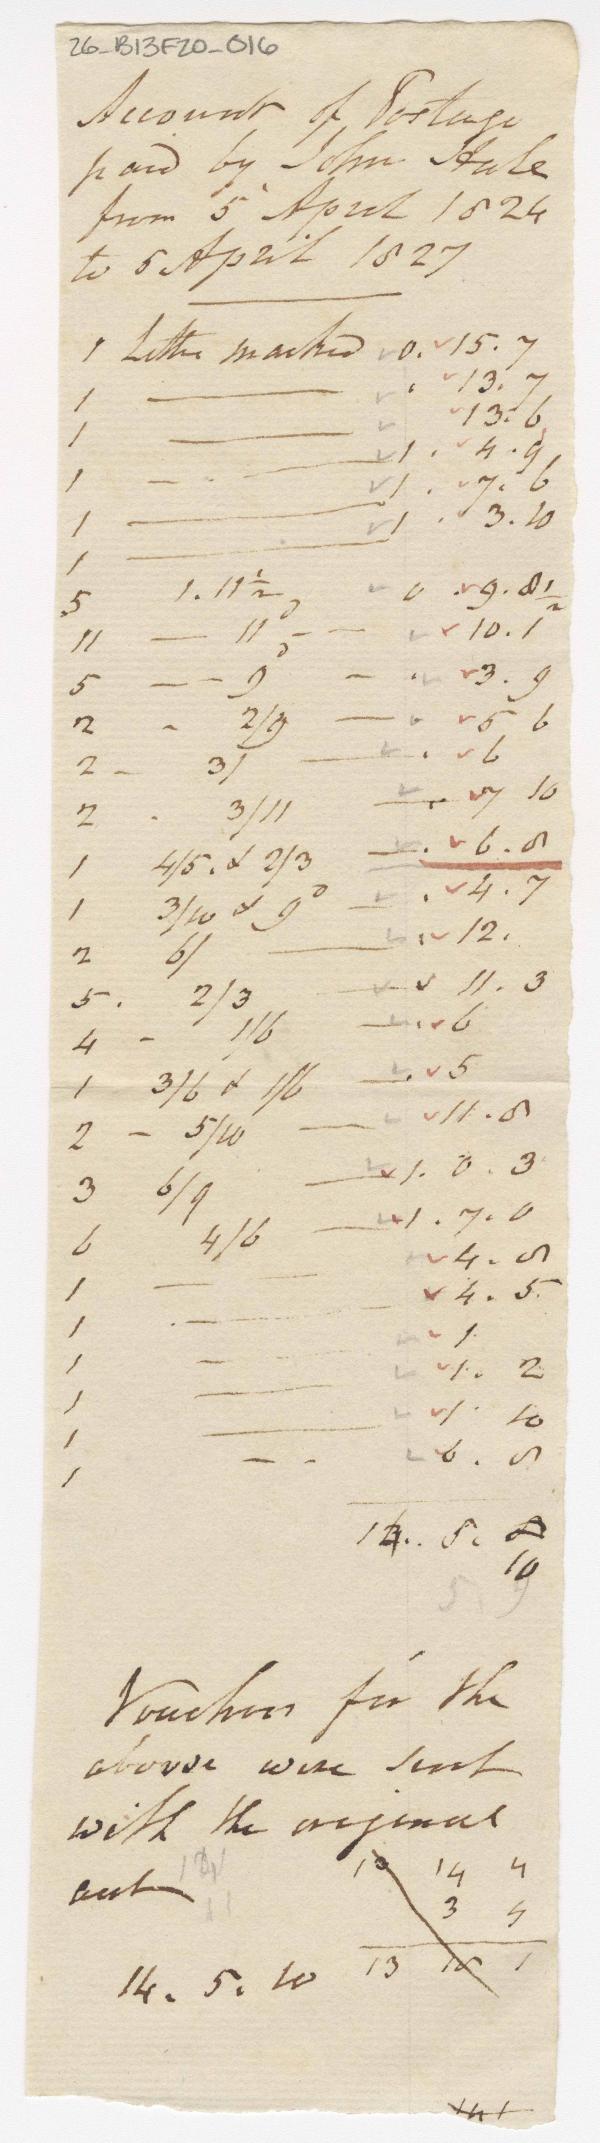 26_B13F20_016
Account of Postage
paid by John Hale
from 5 April 1824
to 5 April 1827
1 Letter marked 0. 15. 7
1 — . 13. 7
1 — 13. 6
1 — 1. 4. 9
1 — 1. 7. 6
1 — 1. 3. 10
5 1. 11½ 0 . 9. 8½
11 — 11 — 10. 1
5 — 9 — . 3. 9
2 - 2/9 — 5 6
2 - 3/ — . 6
2 . 3/11 — 7 10
1 4/5. & 2/3 — . 6. 8
1 3/10 & 9 — . 4. 7
2 6/ — . 12.
5. 2/3 — 11. 3
4 - 1/6 — . 6
1 3/6 & 1/6 — . 5
2 - 5/10 — 11. 8
3 6/9 — 1. 0. 3
6 4/6 — 1. 7. 0
1 — 4. 8
1 — 4. 5
1 — 1
1 — 1. 2
1 — 1. 10
1 — 6. 8
14. 5. 8
10
5 9
Vouchers for the
above were sent
with the original
act
10 14 4
3 4
13 18 1
14. 5. 10